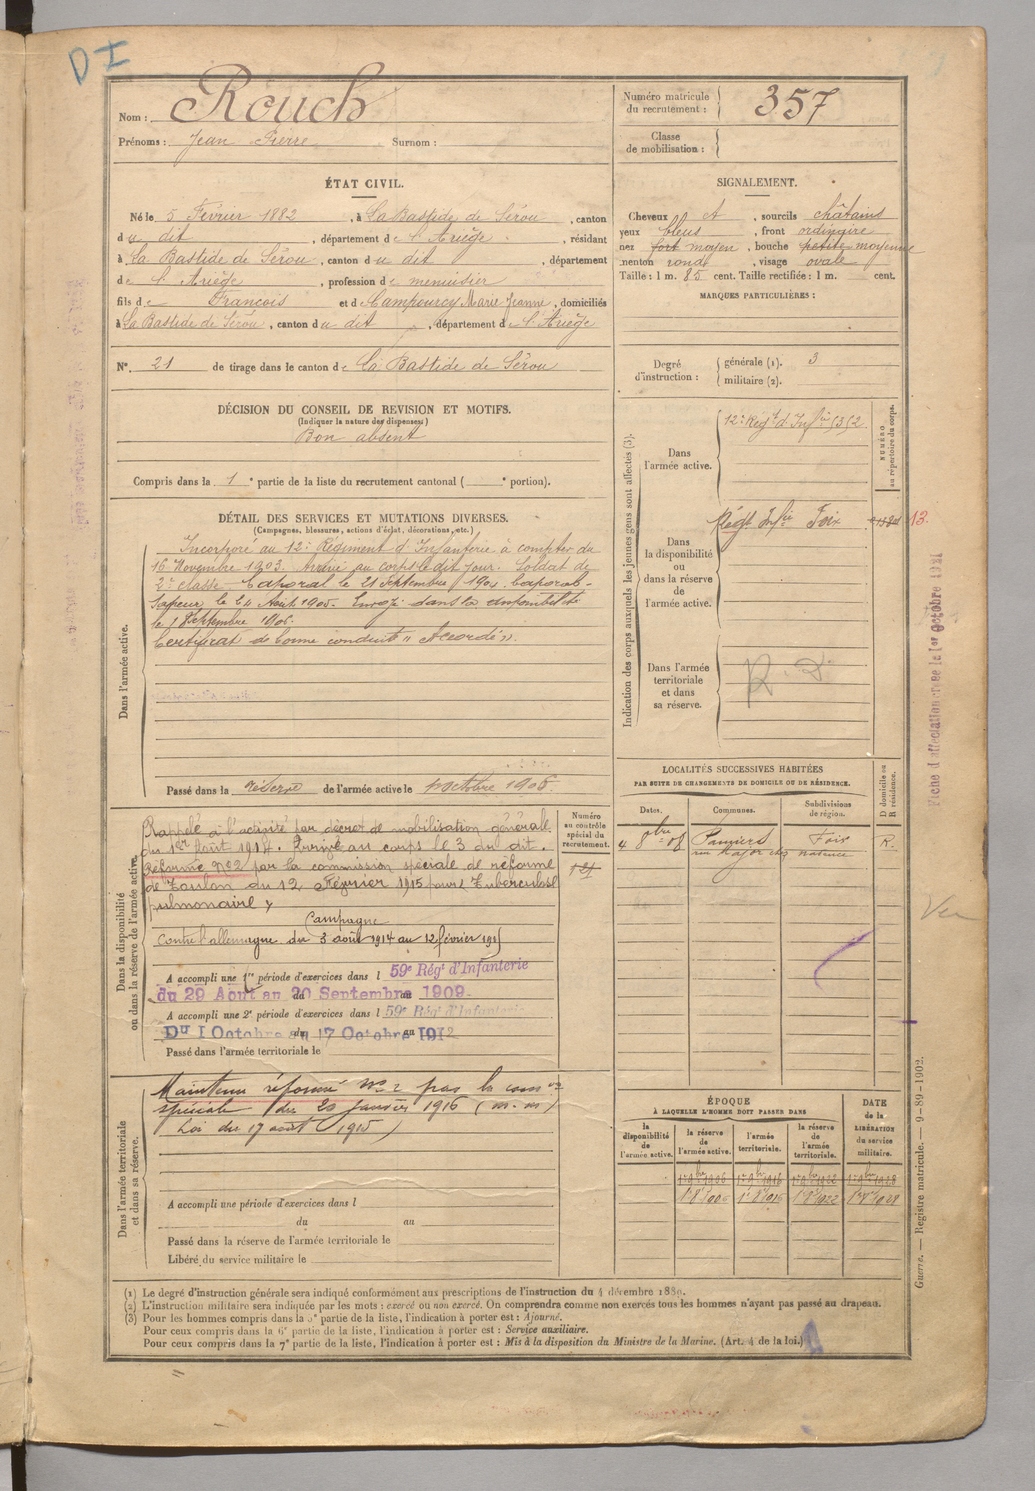 D I
Nom : Rouch
Prénoms : Jean Pierre Surnom :
Numéro matricule du recrutement : 357
Classe de mobilisation :
ÉTAT CIVIL.
Né le 5 Février 1882, à La Bastide de Sérou, canton
du dit, département de l'Ariège, résidant
à La Bastide de Sérou, canton du dit, département
de l'Ariège, profession de menuisier
fils de François et de Campourcy Marie Jeanne, domiciliés
à La Bastide de Sérou, canton du dit, département de l'Ariège
N° 21 de tirage dans le canton de La Bastide de Sérou
SIGNALEMENT.
Cheveux et, sourcils châtains
yeux bleus, front ordinaire
nez fort moyen, bouche petite moyenne
menton rond, visage ovale
Taille : 1 m. 85 cent. Taille rectifiée : 1 m. cent.
MARQUES PARTICULIÈRES :
Degré d'instruction : générale (1). 3
militaire (2).
DÉCISION DU CONSEIL DE REVISION ET MOTIFS.
(Indiquer la nature des dispenses)
Bon absent
Compris dans la 1e partie de la liste du recrutement cantonal ( e portion).
DÉTAIL DES SERVICES ET MUTATIONS DIVERSES.
(Campagnes, blessures, actions d'éclat, décorations, etc.)
Dans l'armée active.
Incorporé au 12e Régiment d'Infanterie à compter du
16 Novembre 1903. Arrivé au corps le dit jour. Soldat de
2e classe. Caporal le 21 Septembre 1904. Caporal-
Sapeur le 24 Août 1905. Envoyé dans la disponibilité
le 18 Septembre 1906.
Certificat de bonne conduite "Accordé".
Passé dans la réserve de l'armée active le 1 octobre 1906
Indication des corps auxquels les jeunes gens sont affectés (3).
NUMÉRO au répertoire du corps.
Dans l'armée active.
12e Régt d'Infie
Dans la disponibilité ou dans la réserve de l'armée active.
Régt Infie Foix
13.
Dans l'armée territoriale et dans sa réserve.
R. D.
Fiche d'affectation créée le 1er Octobre
LOCALITÉS SUCCESSIVES HABITÉES
PAR SUITE DE CHANGEMENTS DE DOMICILE OU DE RÉSIDENCE.
Dates. Communes. Subdivisions de région. D domicile ou R résidence.
4 8bre 08 Pamiers Foix R.
rue Major
Dans la disponibilité ou dans la réserve de l'armée active.
Numéro au contrôle spécial du recrutement.
Rappelé à l'activité par décret de mobilisation générale
du 1er Août 1914. Arrivé au corps le 3 du dit.
Réformé N°2 par la commission spéciale de réforme
de Toulon du 12 Février 1915 pour : Tuberculose
pulmonaire
Campagne
contre l'allemagne du 3 août 1914 au 12 février 1915
A accompli une 1re période d'exercices dans l 59e Régt d'Infanterie
du 29 Aout au 20 Septembre 1909.
A accompli une 2e période d'exercices dans l 59e Régt d'Infanterie
Du 1 Octobre au 17 Octobre 1912
Passé dans l'armée territoriale le
Dans l'armée territoriale et dans sa réserve.
Maintenu réformé N° 2 par la comon
spéciale du 20 janvier 1916 (m. m)
Loi du 17 août 1915)
A accompli une période d'exercices dans l
du au
Passé dans la réserve de l'armée territoriale le
Libéré du service militaire le
ÉPOQUE
À LAQUELLE L'HOMME DOIT PASSER DANS
DATE de la LIBÉRATION du service militaire.
la disponibilité de l'armée active. la réserve de l'armée active. l'armée territoriale. la réserve de l'armée territoriale.
1er 9bre 1906 1er 9bre 1916 1er 9bre 1922 1er 9bre 1928
(1) Le degré d'instruction générale sera indiqué conformément aux prescriptions de l'instruction du 4 décembre 1889.
(2) L'instruction militaire sera indiquée par les mots : exercé ou non exercé. On comprendra comme non exercés tous les hommes n'ayant pas passé au drapeau.
(3) Pour les hommes compris dans la 5e partie de la liste, l'indication à porter est : Ajourné.
Pour ceux compris dans la 6e partie de la liste, l'indication à porter est : Service auxiliaire.
Pour ceux compris dans la 7e partie de la liste, l'indication à porter est : Mis à la disposition du Ministre de la Marine. (Art. 4 de la loi.)
Guerre. — Registre matricule. — 9-89-1902.